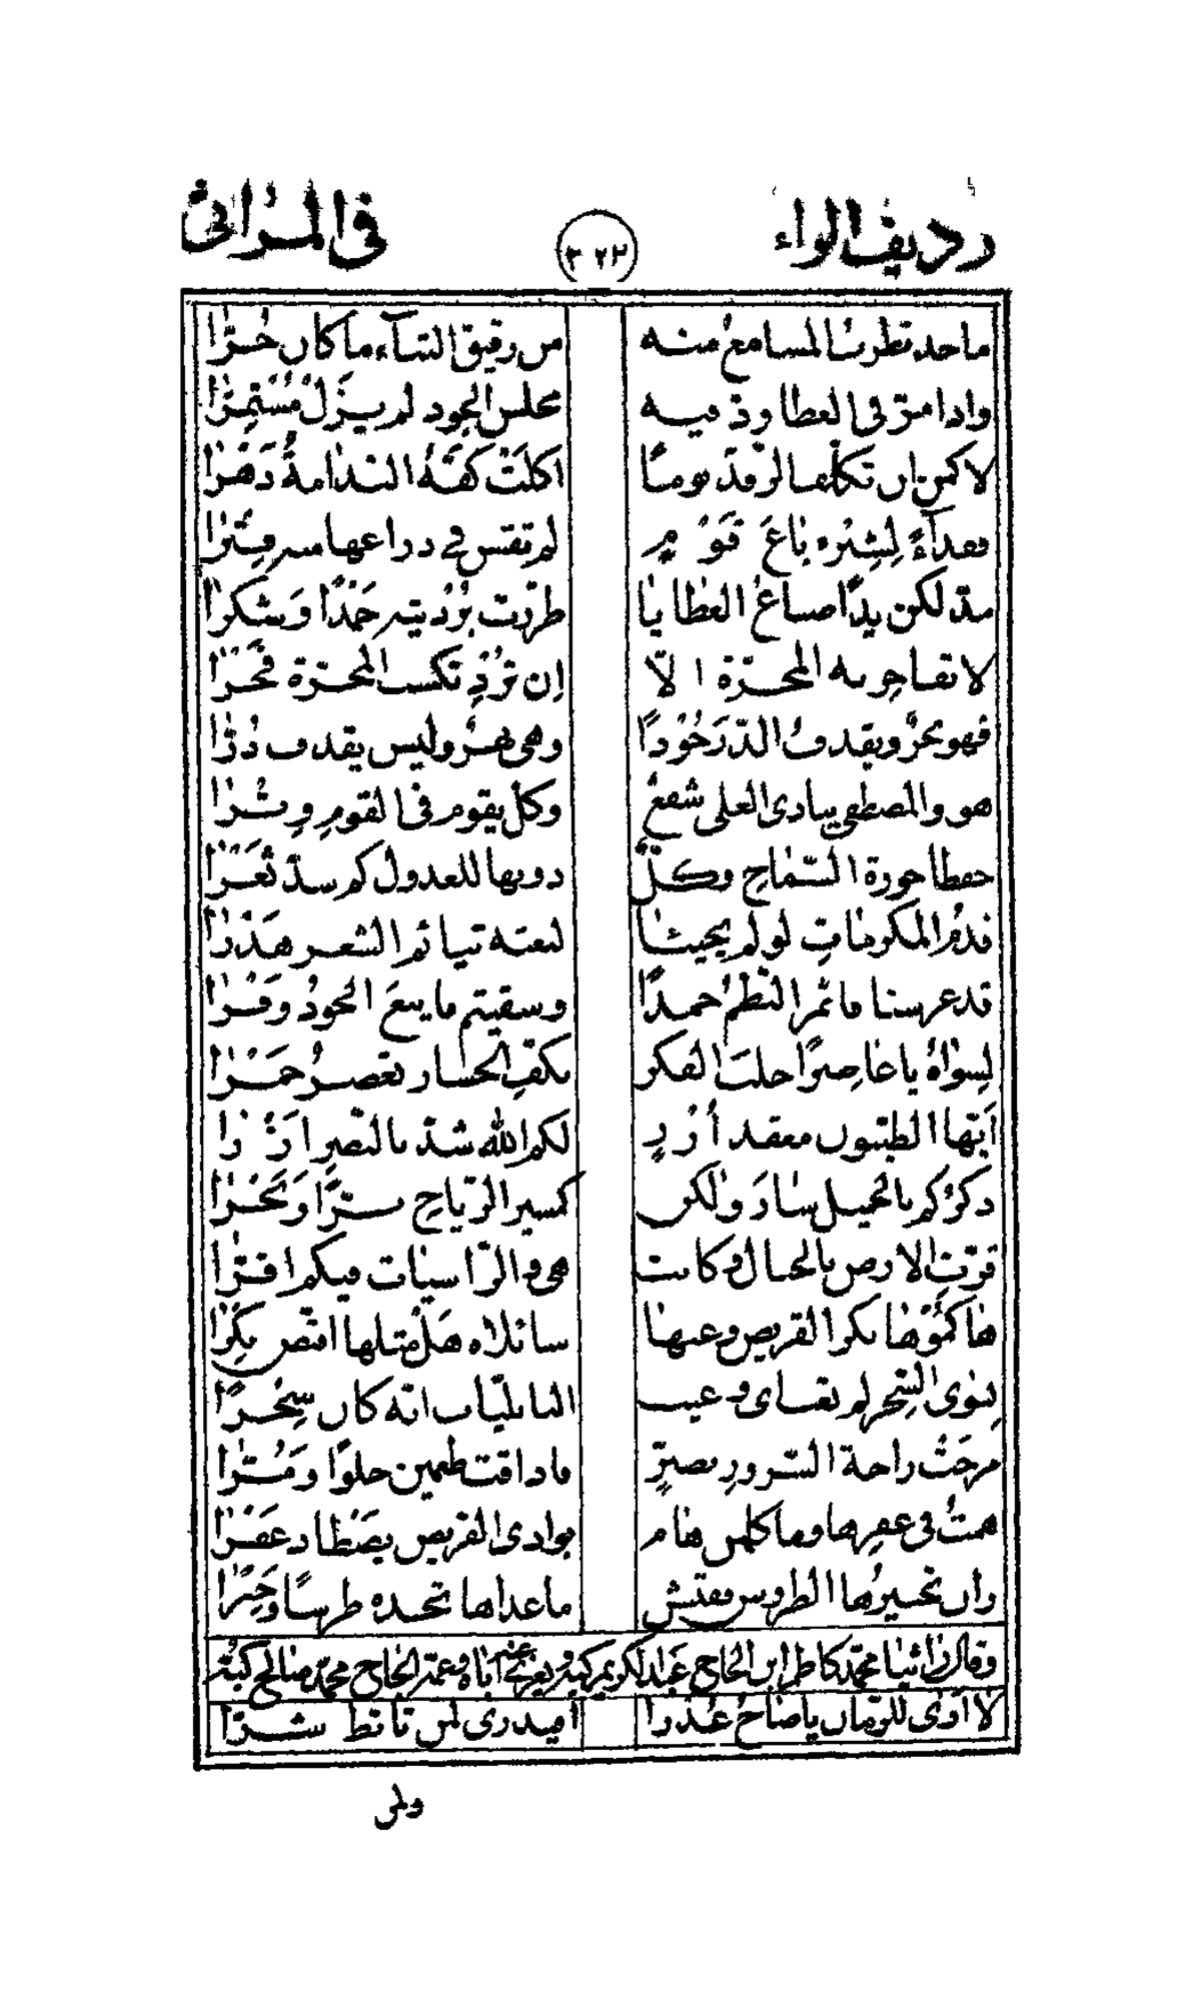 رديف الراء ٣٢٢ في المراثي
ماجد تطرب المسامع منه من رقيق الثناء ما كان حرّا
واذا مرّ في العطا ودّ فيه مجلس الجود لم يزل مستمرّا
لا كمن ان تكلّف الرفد يوما اكلت كفّه الندامة دهرا
فعداء لشبره باع قوم لم تقس في ذراعها منه فترا
مدّ لكن يدًا صباغ العطايا طرّزت بُرديته حمدًا وشكرا
لا تفاخر به المجرّة الّا ان تُرِد تكسب المجرّة فخرا
فهو بحر ويقذف الدرّ جودًا وهي نهر وليس يقذف دُرّا
هو والمصطفى بنادي العلى شفع وكلّ يقوم في القوم وترا
حفظا حوزة السماح وكلّ دونها للعذول كم سدّ ثغرا
فدم المكرمات لو لم يجيئا لبعته تيا ثم الشعر هدرا
قد غرسنا ثمر النظم حمدًا وسقيتم ما ينبع الجود وفرا
لسواه يا عاصرًا حلب الفكر بكفّ الخسار تعصر خمرا
ايّها الطيّبون معقد أُزرٍ لكم الله شدّ بالنصر ازرا
ذكركم بالجميل سار ولكن كمسير الرياح برّا وبحرا
قرّت الارض بالجبال وكانت هي والراسيات فيكم اقرّا
هاكموها بكر القريض وعنها سائلاه هل مثلها افتضّ بكرا
سوى السحر لم تعباى وعيب البابليّات انّه كان سحرا
مزجت راحة السرور بصبرٍ ماذاقت طعمين حلوًا ومرّا
همت في عفرها وما كلمن هام بوادي القريض يصطاد عفرا
وان تخسيرها الطروس ففتّش ما عداها تجده طرسًا وحبرا
وقال راثيا محمد كاظم ابن الحاج عبد الكريم كبة ويعزي عنه اباه وعمه الحاج محمد صالح كبة
لا ارى للزمان يا صاح عذرا افيدري لمن تابّط شرّا
ولمن